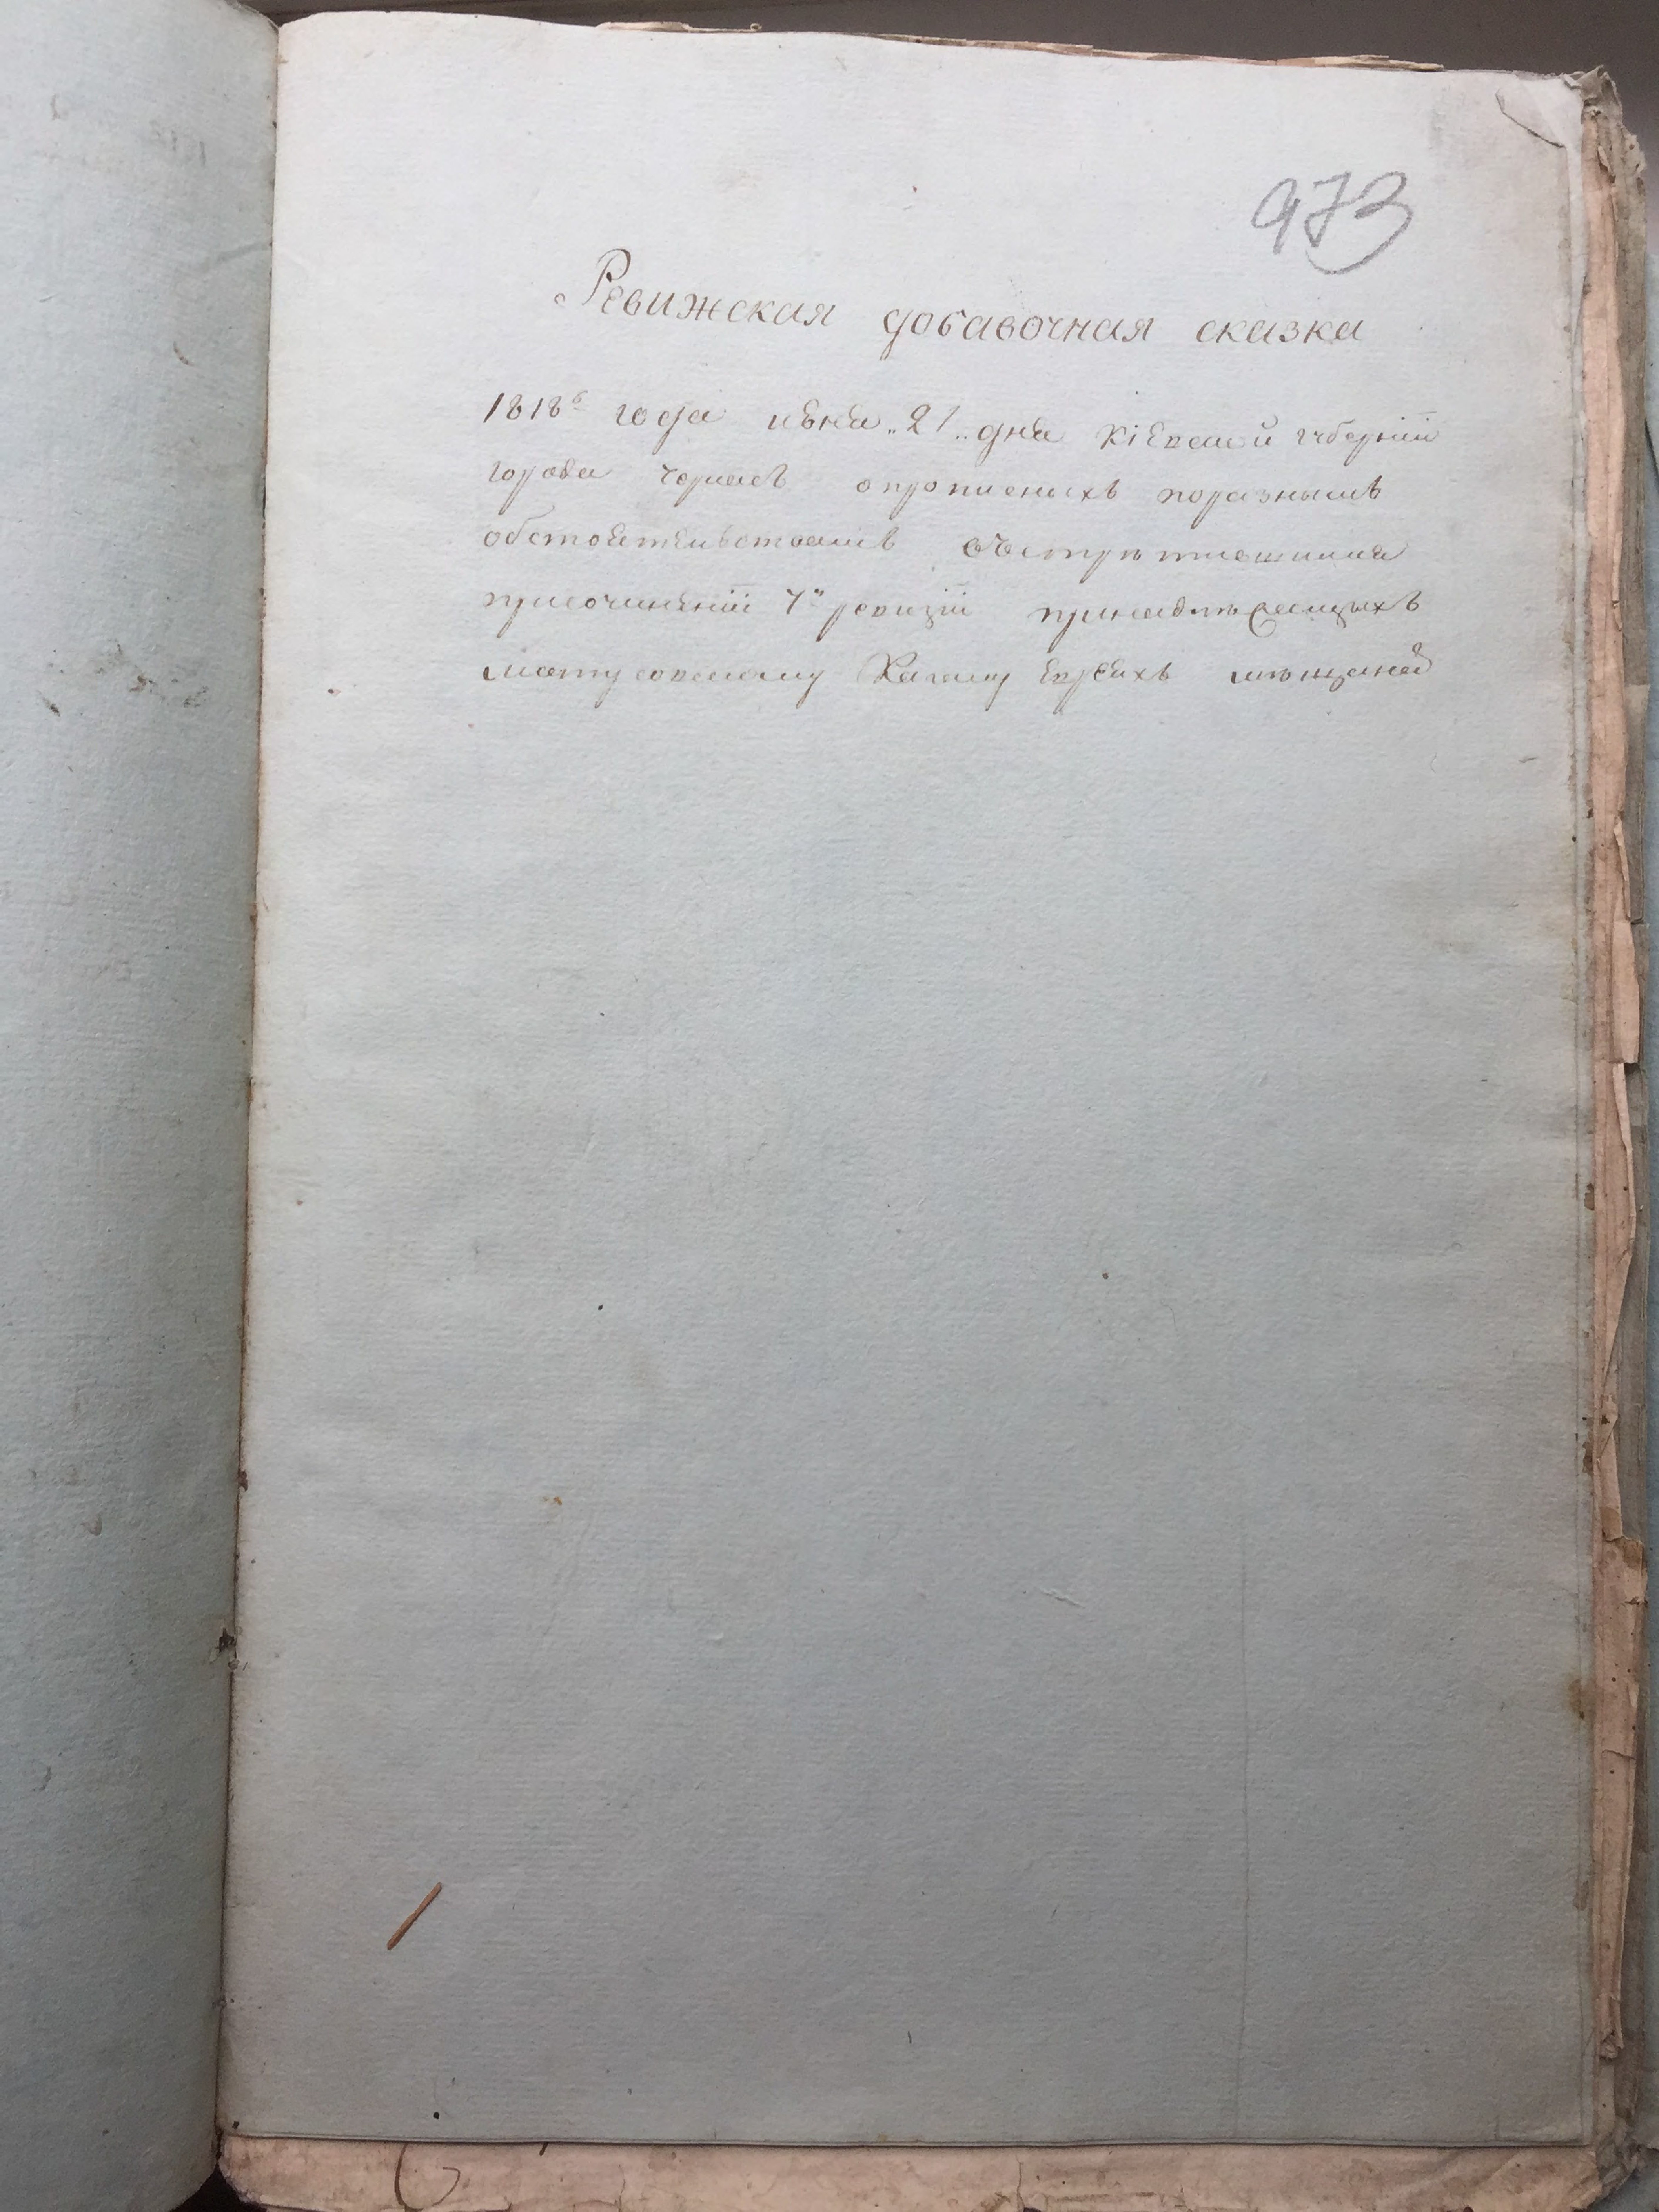 973
Ревижская добавочная сказка
1818го года июня „21„ дня Кіевской губерніи
города Черкасъ о прописныхъ по разнымъ
обстоятельствамъ
при сочиненіи 7й ревизіи принадлежащихъ
Матусовскому Кагалу Евреихъ мѣщанъ